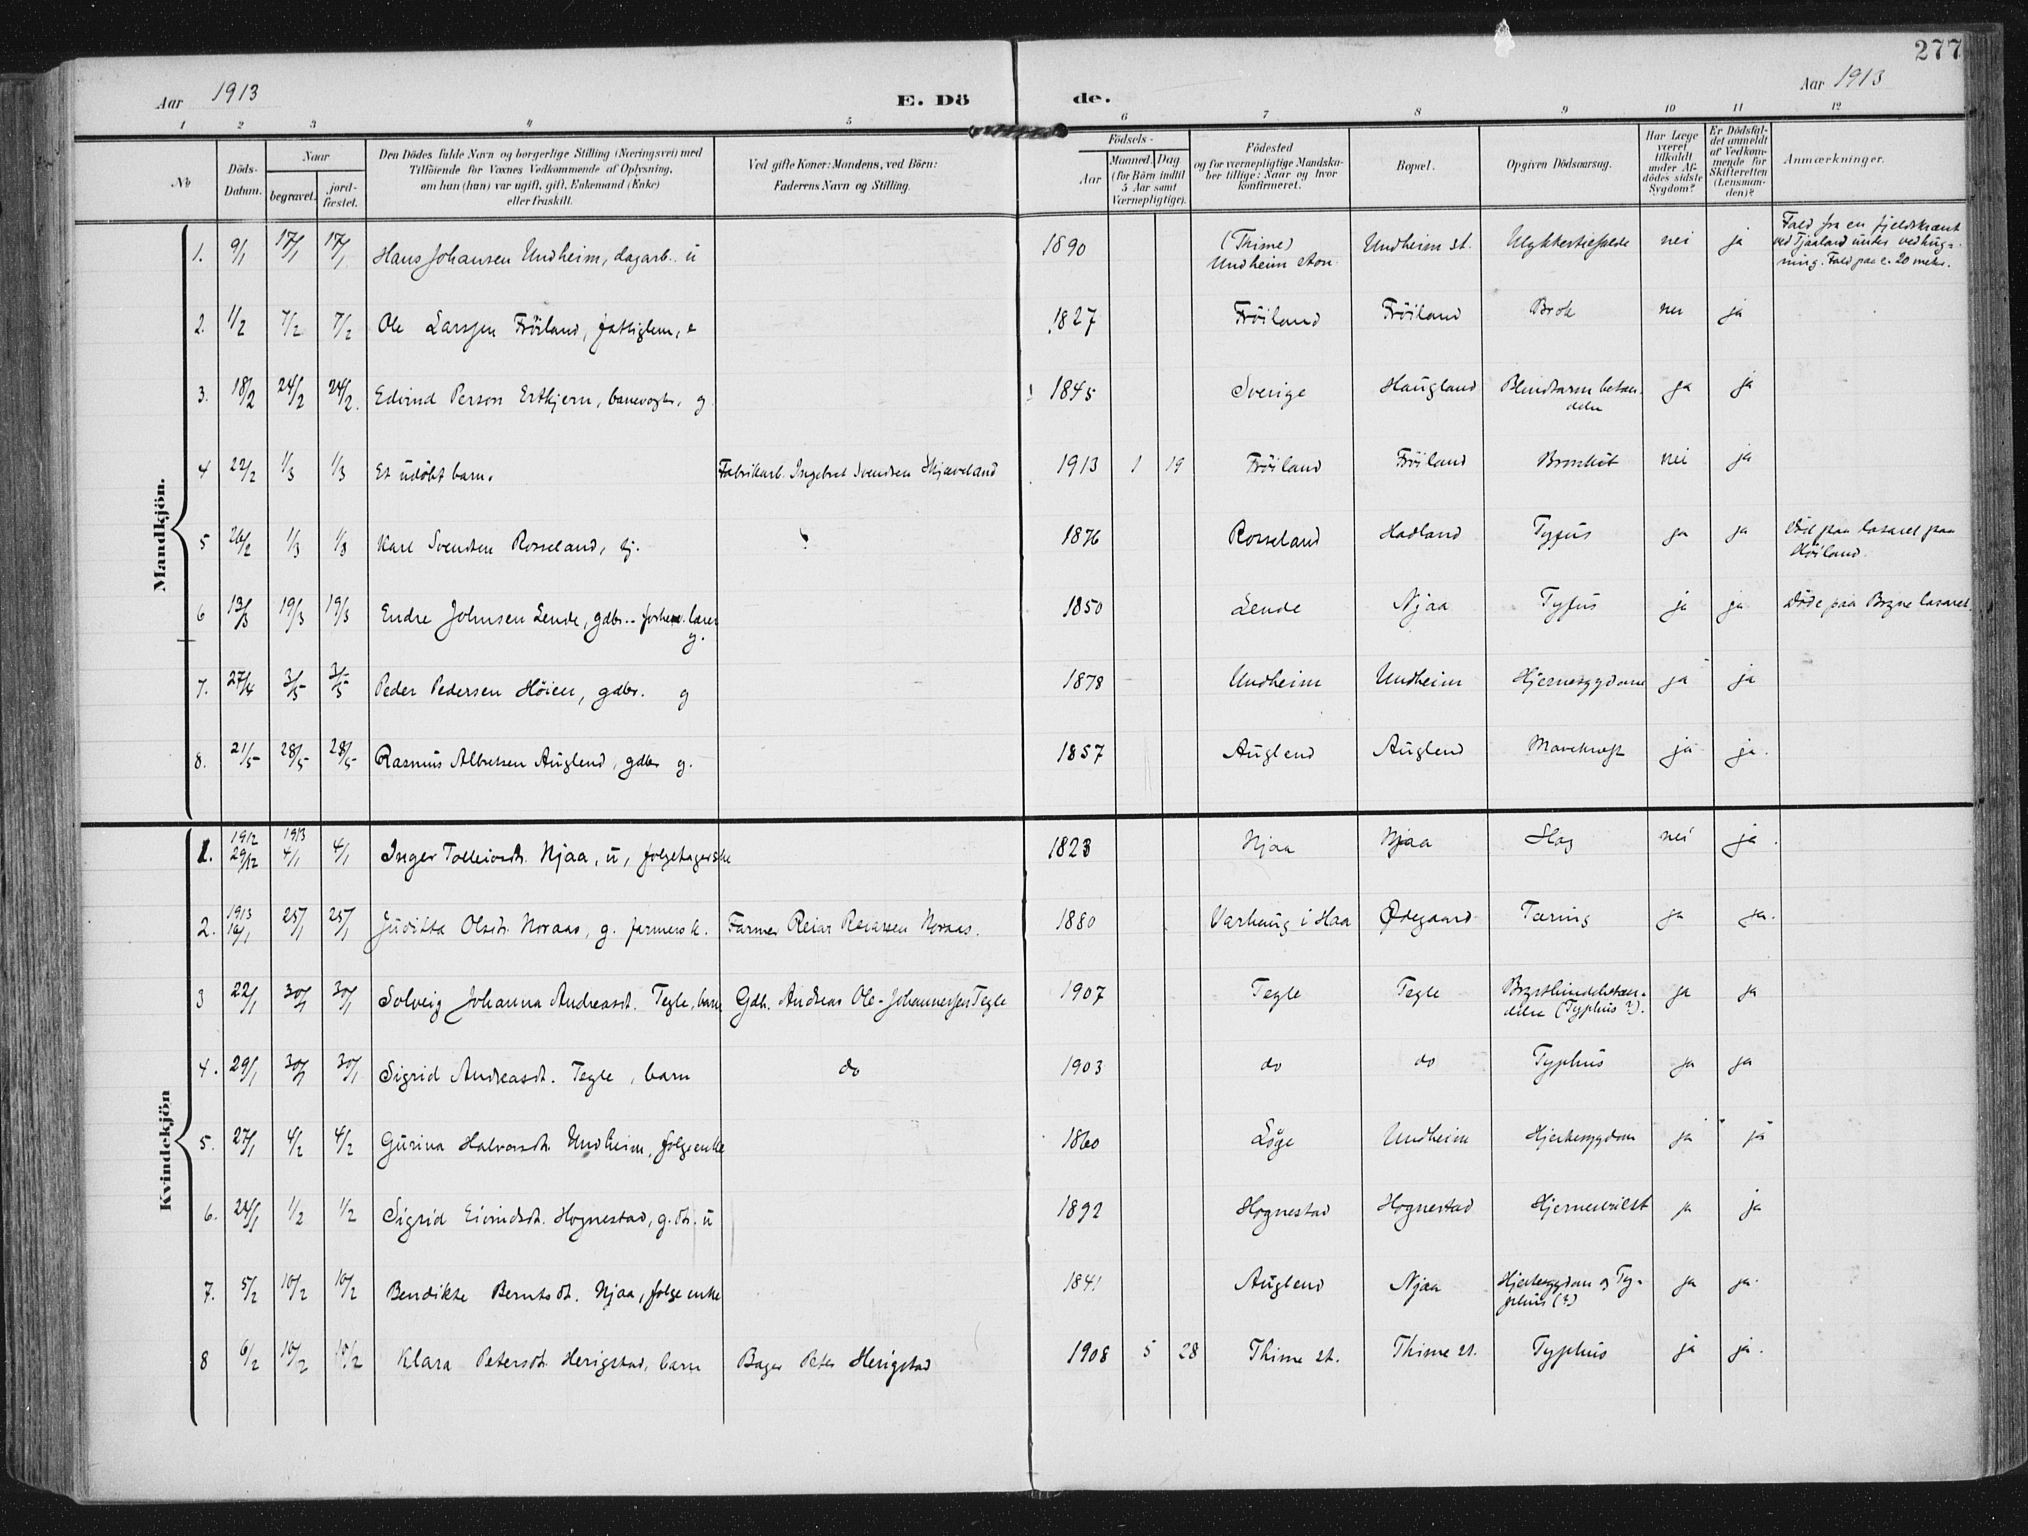 277
Aar 1913 E. Dö de. Aar 1913
1 2 3 4 5 6 7 8 9 10 11 12
No
Döds-Datum.
Naar
begravet.
jord-fæstet.
Den Dödes fulde Navn og borgerlige Stilling (Næringsvei) med
Tilföiende for Voxnes Vedkommende af Oplysning,
om han (hun) var ugift, gift, Enkemand (Enke)
eller fraskilt.
Ved gifte Koner: Mandens, ved Börn:
Faderens Navn og Stilling.
Födsels-
Aar
Maaned. Dag
(for Börn indtil
5 Aar samt
Værnepligtige).
Födested
og for værnepligtige Mandska-
ber tillige: Naar og hvor
konfirmeret.
Bopæl.
Opgiven Dödsaarsag.
Har Læge
været
tilkaldt
under Af-
dödes sidste
Sygdom?
Er Dödsfal-
det anmeldt
af Vedkom-
mende for
Skifteretten
(Lensman-
den)?
Anmærkninger.
Mandkjön.
1. 9/1 17/1 17/1 Hans Johansen Undheim, dagarb. u 1890 (Thime) Undheim Undheim st. Ulykkestilfælde nei ja Fald fra en fjeldskrænt
ved Tjaaland under vedhug-
ning. Fald paa c. 20 meter.
2. 1/2 7/2 7/2 Ole Larssen Fröiland, fattiglem, e 1827 Fröiland Fröiland Brok nei ja
3. 18/2 24/2 24/2. Edvind Person Ertkjern, banevogt, g. 1845 Sverige Haugland Blindtarmbetæn-
delse ja ja
4 22/2 1/3 1/3 Et udöbt barn. Fabrikarb. Ingebret Svendsen Skjæveland 1913 1 19 Fröiland Fröiland Bronkit nei ja
5 26/2 1/3 1/3 Karl Svendsen Rosseland, 1876 Rosseland Hadland Tyfus ja ja Död paa lasaret paa
Höiland.
6 13/3 19/3 19/3 Endre Johnsen Lende, gdbr. - forhenv. lærer
g. 1850 Lende Njaa Tyfus ja ja Döde paa Bryne lasaret.
7. 27/4 3/5 3/5 Peder Pedersen Höien, gdbr. g 1878 Undheim Undheim Hjernesygdom ja ja
8. 21/5 28/5 28/5 Rasmus Albretsen Auglend, gdbr g. 1857 Auglend Auglend Mavekræft ja ja.
Kvindekjön
1. 1912 29/12 1913 4/1 4/1 Inger Tolleivsdt. Njaa, u, folgetagerske 1823 Njaa Njaa Slag nei ja.
2. 1913 16/1 25/1 25/1 Juditta Olsdt. Noraas, g. farmersk. Farmer Reiar Reiarsen Noraas. 1880 Varhaug i Haa Ødegaard Tæring ja ja.
3 22/1 30/1 30/1 Solveig Johanna Andreasdt. Tegle, barn Gdb. Andreas Ole-Johannessen Tegle 1907 Tegle Tegle Brysthindebetæn-
delse (Typhus?). ja ja
4. 29/1 30/1 30/1 Sigrid Andreasdt. Tegle, barn do 1903 do do Typhus ja ja
5. 27/1 4/2 4/2 Gurina Halvorsdt. Undheim, folgeenke 1860 Löge Undheim Hjertesygdom ja ja
6. 24/1 1/2 1/2 Sigrid Eivindsdt. Hognestad, g.dt. u 1892 Hognestad Hognestad Hjernesvulst ja ja
7. 5/2 10/2 10/2 Bendikte Berntsdt. Njaa, folgeenke 1841 Auglend Njaa Hjertesygdom og Ty-
phus (?) ja ja.
8 6/2 10/2 10/2 Klara Petersdt. Herigstad, barn Bager Peter Herigstad 1908 5 28 Thime st. Thime st. Typhus ja ja.